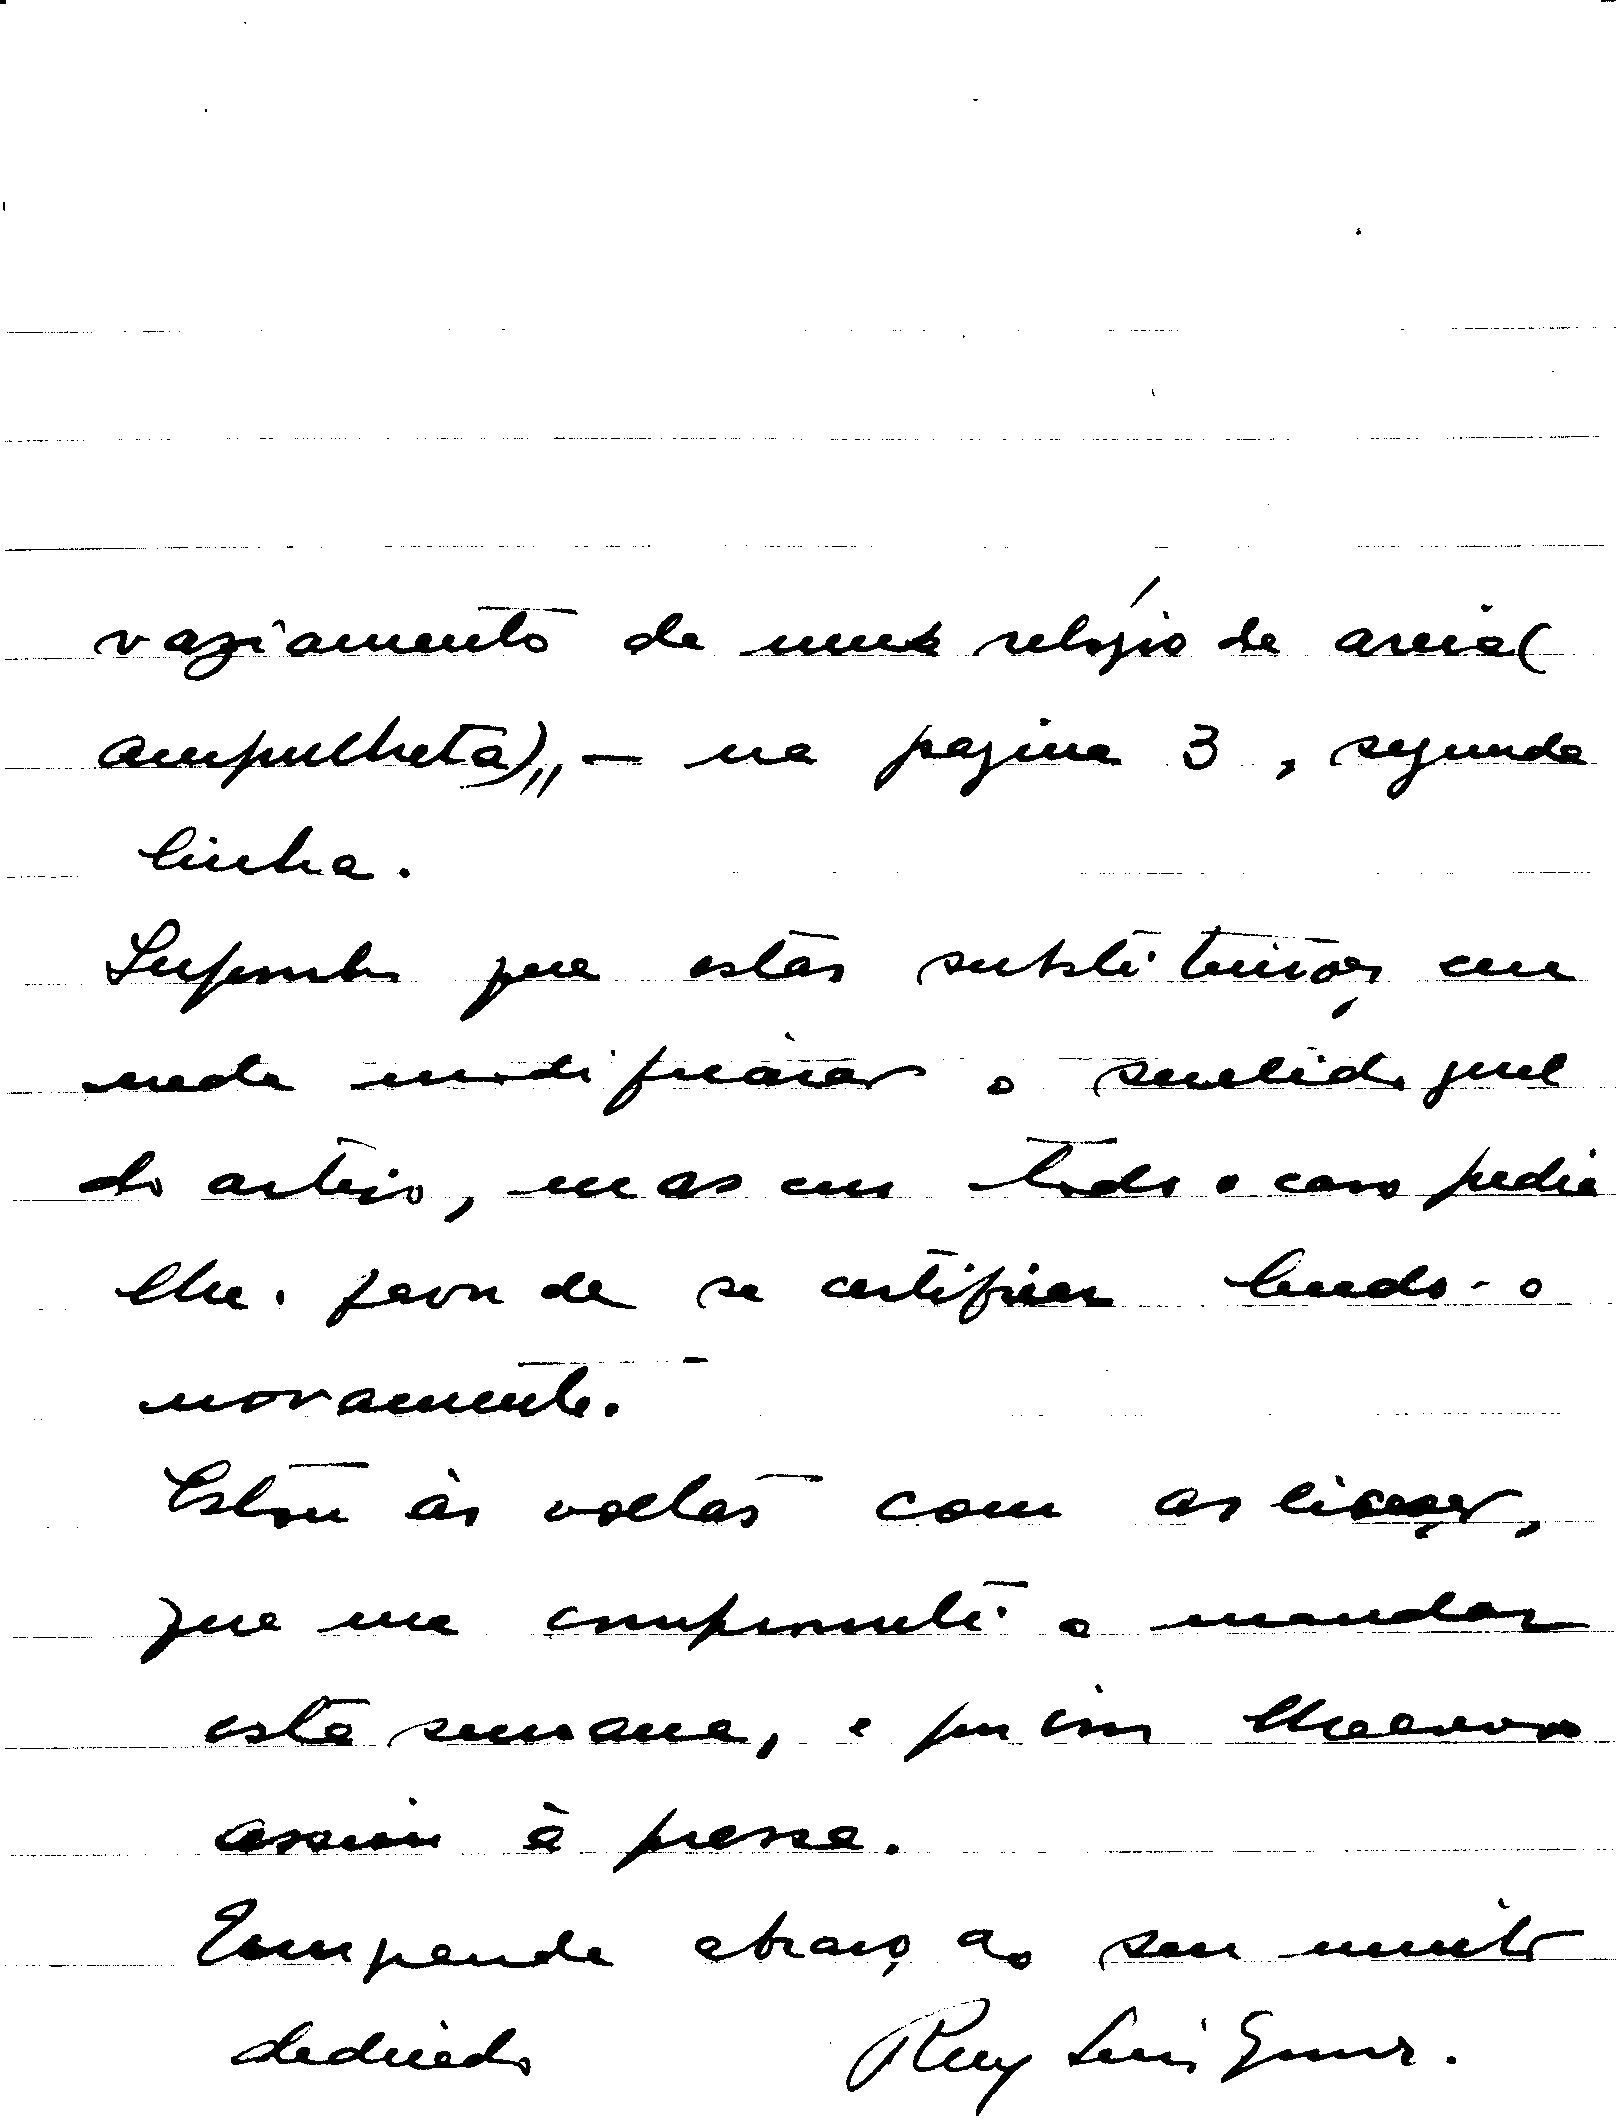 vaziamento de uma relógio de areia(
ampulheta)„ — na pagina 3, segunda
linha.
Suponho que estas substituições em
nada modificarão o sentido geral
do artigo, mas em todo o caso pedia
lhe o favor de se certificar lendo-o
novamente.
Estou às voltas com as lições,
que me comprometi a mandar
esta semana, e por isso lhe escrevo
assim à pressa.
Um grande abraço do seu muito
dedicado Ruy Luís Gomes.